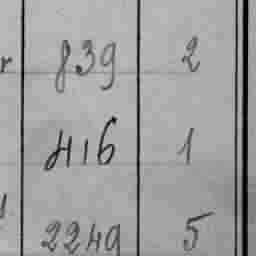 r 839 2
416 1
2249 5